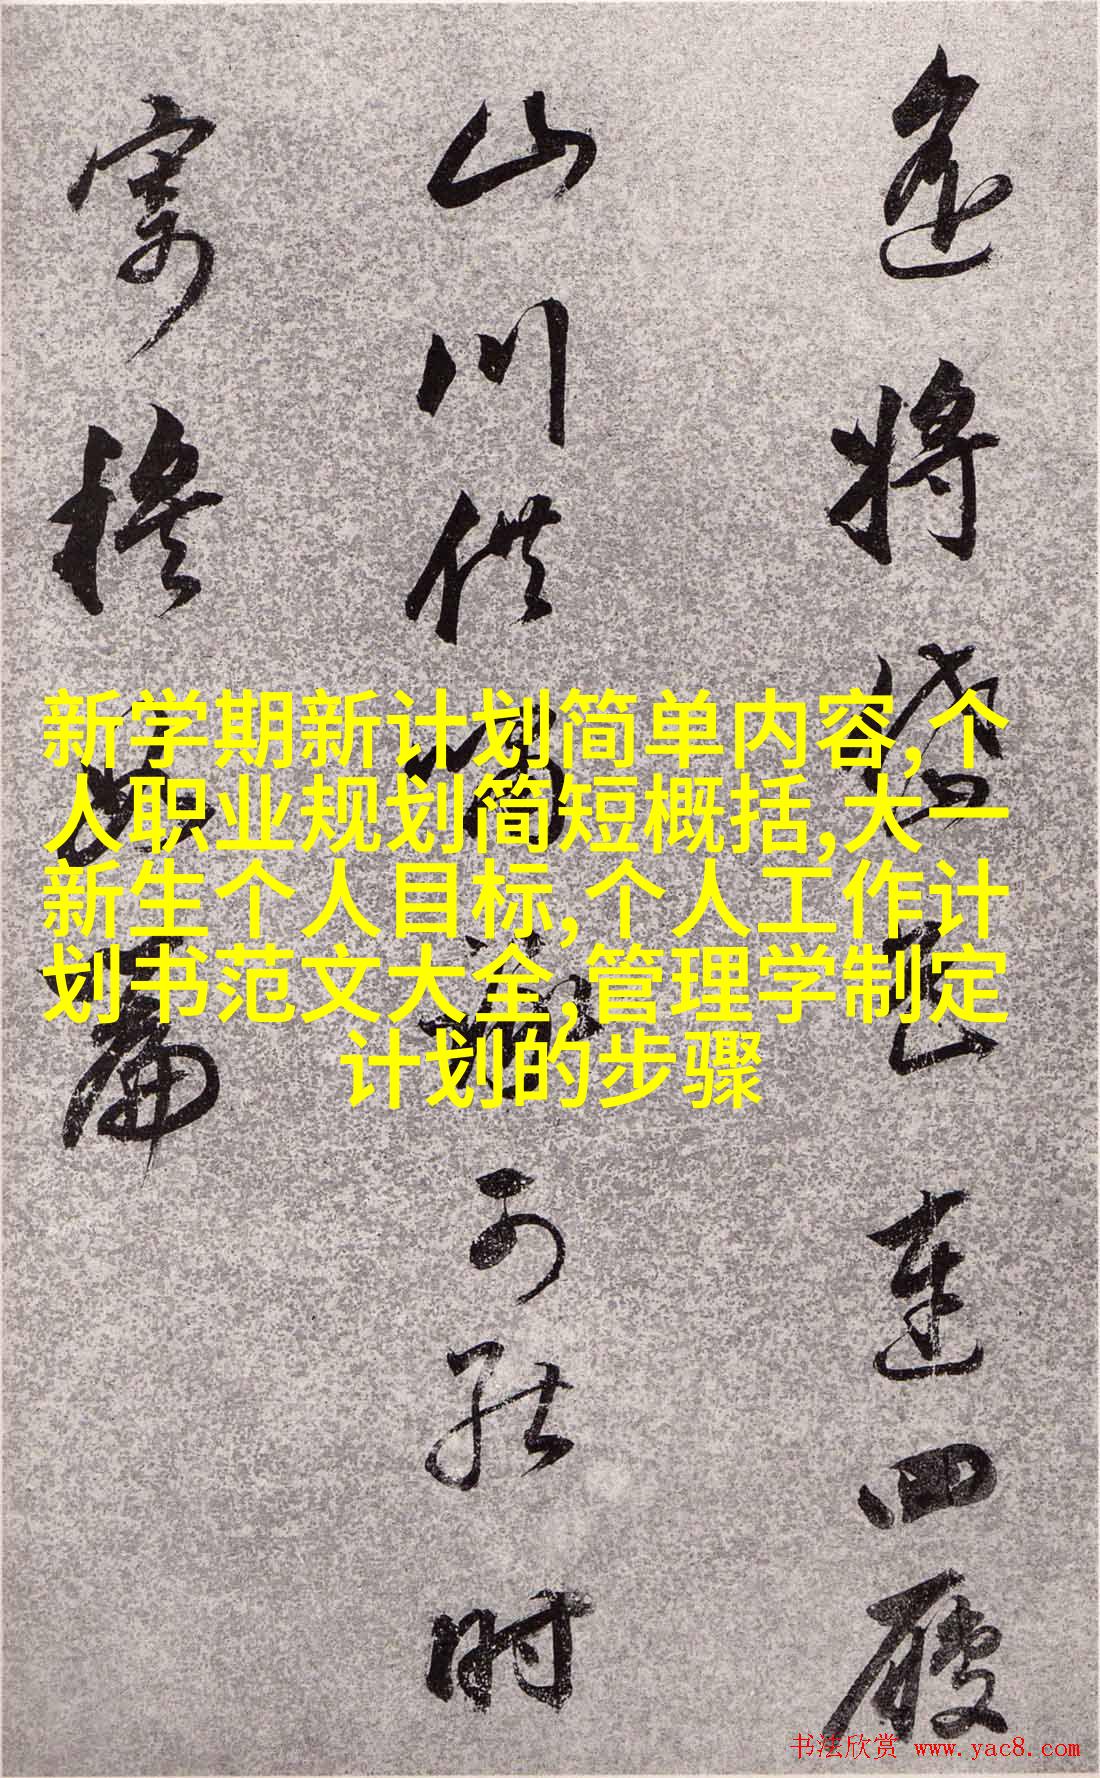 將盛
連四
山川供
可能時
寄
篇
新学期新计划简单内容,个
人职业规划简短概括,大一
新生个人目标,个人工作计
划书范文大全,管理学制定
计划的步骤
书法欣赏 www.yac8.com